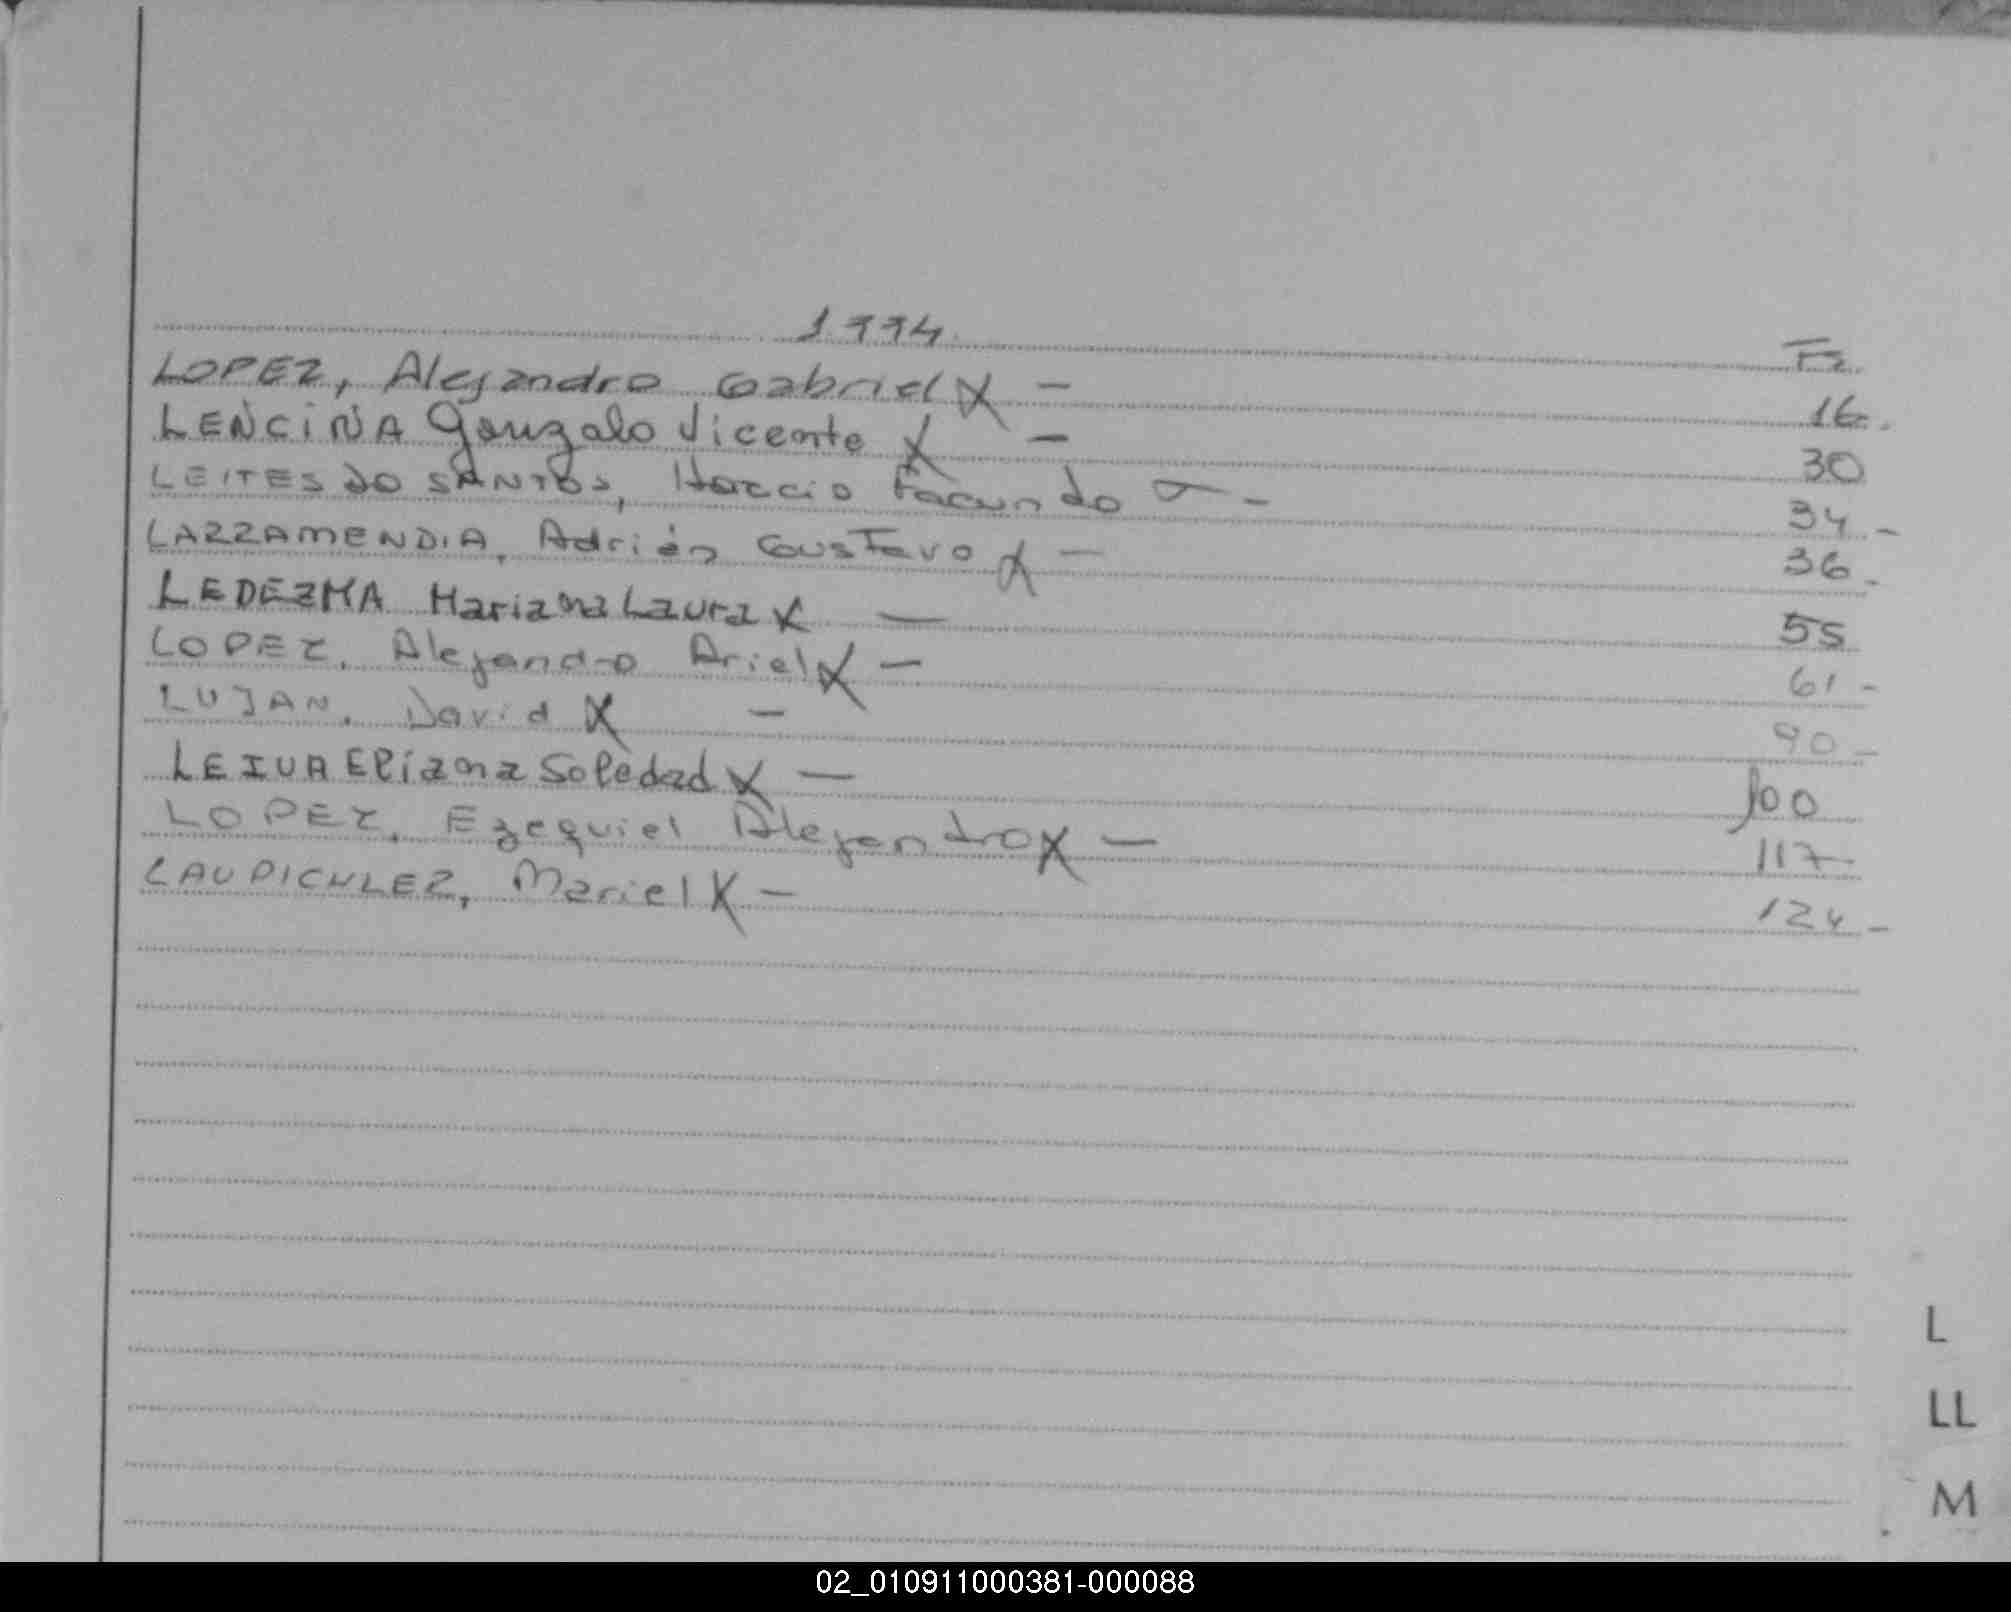 1994.
Fs.
LOPEZ, Alejandro Gabriel X — 16.
LENCINA Gonzalo Vicente X — 30
LEITES DO SANTOS, Horacio Facundo — 34 -
LAZZAMENDIA, Adrián Gustavo X — 36.
LEDEZMA Mariana Laura X — 55
LOPEZ, Alejandro Ariel X — 61 -
LUJAN, David X — 90 -
LEIVA Eliana Soledad X — 100
LOPEZ, Ezequiel Alejandro X — 117
Mariel X — 124 -
L
LL
M
02_010911000381-000088